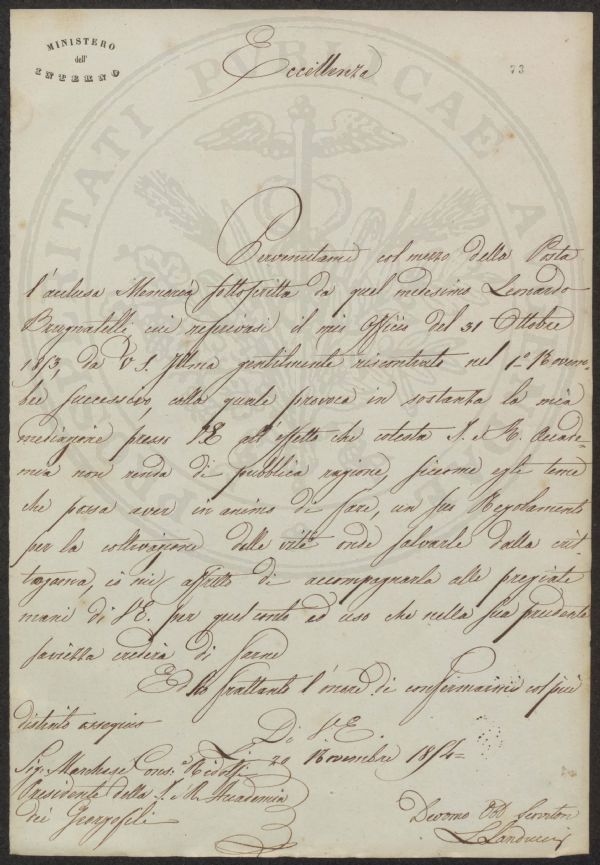 MINISTERO
dell'
INTERNO
73
Eccellenza
PROSPERITATI PUBLICAE
Pervenutami col mezzo della Posta
l'acclusa Memoria sottoscritta da quel medesimo Leonardo
Brugnatelli cui riferivasi il mio Officio del 31 Ottobre
1853, da V. S. Illma gentilmente riscontrato nel 1º Novem-
bre successivo, colla quale provoca in sostanza la mia
mediazione presso V. E. all'effetto che cotesta I. e R. Accade-
mia non renda di pubblica ragione, siccome egli teme
che possa aver in animo di fare, un suo Regolamento
per la coltivazione delle viti onde salvarle dalla crit-
togama, io mi affretto di accompagnarla alle pregiate
mani di V. E. per quel conto ed uso che nella sua prudente
saviezza crederà di farne
Ed ho frattanto l'onore di confermarmi col più
distinto ossequio
Di V. E.
Li 20 Novembre 1854
Sig. Marchese Cons.e Ridolfi
Presidente della I. e R. Accademia
dei Georgofili
Devomo Obb Servitore
L. Landucci